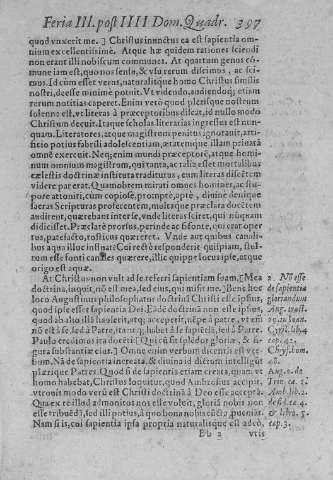 Feria III. post IIII Dom. Quadr. 397
quod vnxerit me. } Christus inunctus ea est sapientia om-
nium excellentissimè. Atque hæ quidem rationes sciendi
non erant illi nobiscum communes. At quartum genus cõ-
mune iam est, quo nos sensu, & vsu rerum discimus, ac sci-
mus. Id cùm esset verus, naturalisque homo Christus similis
nostri, deesse minimè potuit. Vt videndo, audiendoq; etiam
rerum notitias caperet. Enim verò quod plerisque nostrum
solenne est, vt literas à præceptoribus discãt, id nullo modo
Christum decuit. Itaque scholas literarias ingressus est nun-
quam. Literatores, atque magistros penitus ignorauit, arti-
ficio potius fabrili adolescentiam, ætatemque illam priuatã
omnẽ exercuit. Neq; enim mundi præceptorẽ, atque homi-
num omnium magistrum, qui tanta, ac talia esset mortalibus
cælestis doctrinæ instituta traditurus, eum literas discẽtem
videre par erat. Quamobrem mirati omnes homines, ac stu-
pore attoniti, cum copiosè, promptè, aptè, diuinè denique
sacras Scripturas proferentem, multaque præclara docẽtem
audirent, quærebant inter se, vnde literas sciret, qui nũquam
didicisset. Præclarè prorsus, perinde ac si fonte, qui erat aper-
tus, patefacto, hosticus quæreret. Vnde aut quibus canali-
bus aqua illuc influat? Cui rectè responderit quispiam, stul-
tum esse fonti canales quærere, illic quippe locus ipse, atque
origo est aquæ.
At Christus non vult ad se referri sapientiam suam, [Mea
doctrina, inquit, nõ est mea, sed eius, qui misit me.] Benè hoc
loco Augustinus philosophatur doctrinã Christi esse ipsum,
quod ipse esset sapientia Dei. Eã de doctrinã non esse ipsius,
quod ab alio illã haberet, atq; accepisset, nẽpe à patre, vt enim
nõ est à se, sed à Patre, itant; habet à se sapiẽtiã, sed à Patre.
Paulo credimus ita docẽti. [Qui cũ sit splẽdor gloriæ, & fi-
gura substantiæ eius.] Omne enim verbum dicentis est ver-
bum. Nã de sapientia increata, & diuina id dictum intelligũt
plærique Patres. Quod si de sapientia etiam creata, quam vt
homo habebat, Christus loquitur, quod Ambrosius accipit,
vtroui modo verũ est Christi doctrinã à Deo esse acceptã.
Qua ex re illud admonitos nos esse voluit, gloriã nobis non
esse tribuẽdã, sed illi potius, à quo bona nobis cũcta, ponẽtiãt.
Nam si is, cui sapientia ipsa propria naturalisque est adeò,
Bb 2 vtis
2. Nõ esse
de sapientia
gloriandum
Aug. tract.
Cyril. lib. 4
cap. 42.
Chrys. hom.
48.
Aug. 2. de
Trin. ca. 2.
Amb. lib. 2.
de fid. ca. 4.
& libro. 5.
cap. 3.